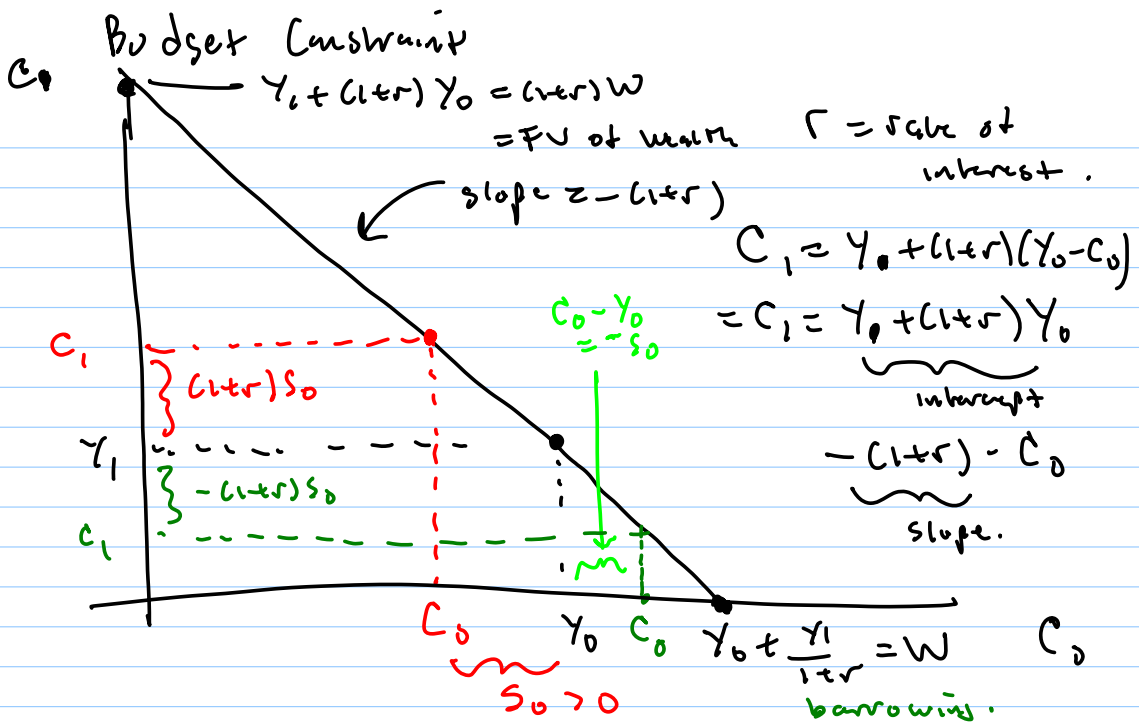 Budget Constraint
C₁
Y₁ + (1+r) Y₀ = (1+r) W
= FV of wealth
r = rate of
interest.
slope = -(1+r)
C₁ = Y₁ + (1+r)(Y₀-C₀)
= C₁ = Y₁ + (1+r) Y₀
intercept
-(1+r) · C₀
slope.
C₀ - Y₀
= -S₀
C₁
(1+r) S₀
Y₁
-(1+r) S₀
C₁
C₀
Y₀
C₀
Y₀ + Y1/1+r = W
C₀
S₀ > 0
borrowing.